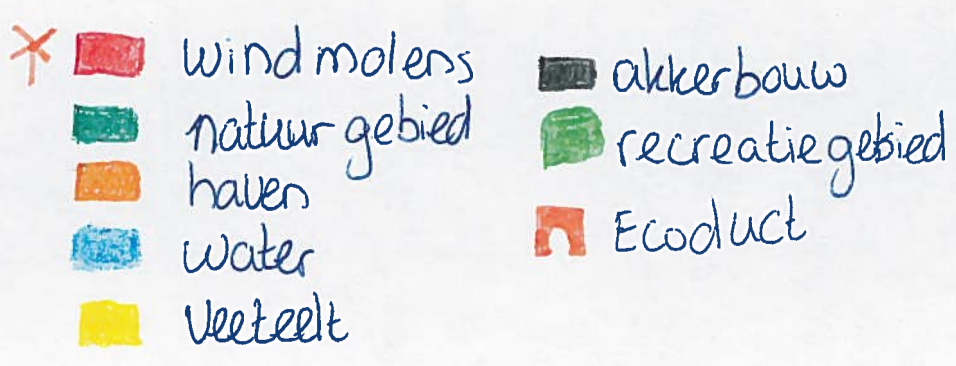 windmolens
natuurgebied
haven
water
Veeteelt
akkerbouw
recreatiegebied
Ecoduct